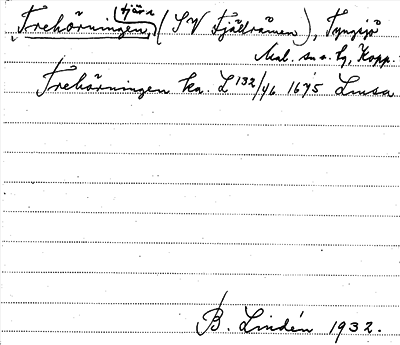 Trehörningen, tjärn (SV Fjällrämen), Tyngsjö
Mal. sn o. hg, Kopp.
Trehörningen ka. L 132/46 1675 LmsA
B. Lindén 1932.